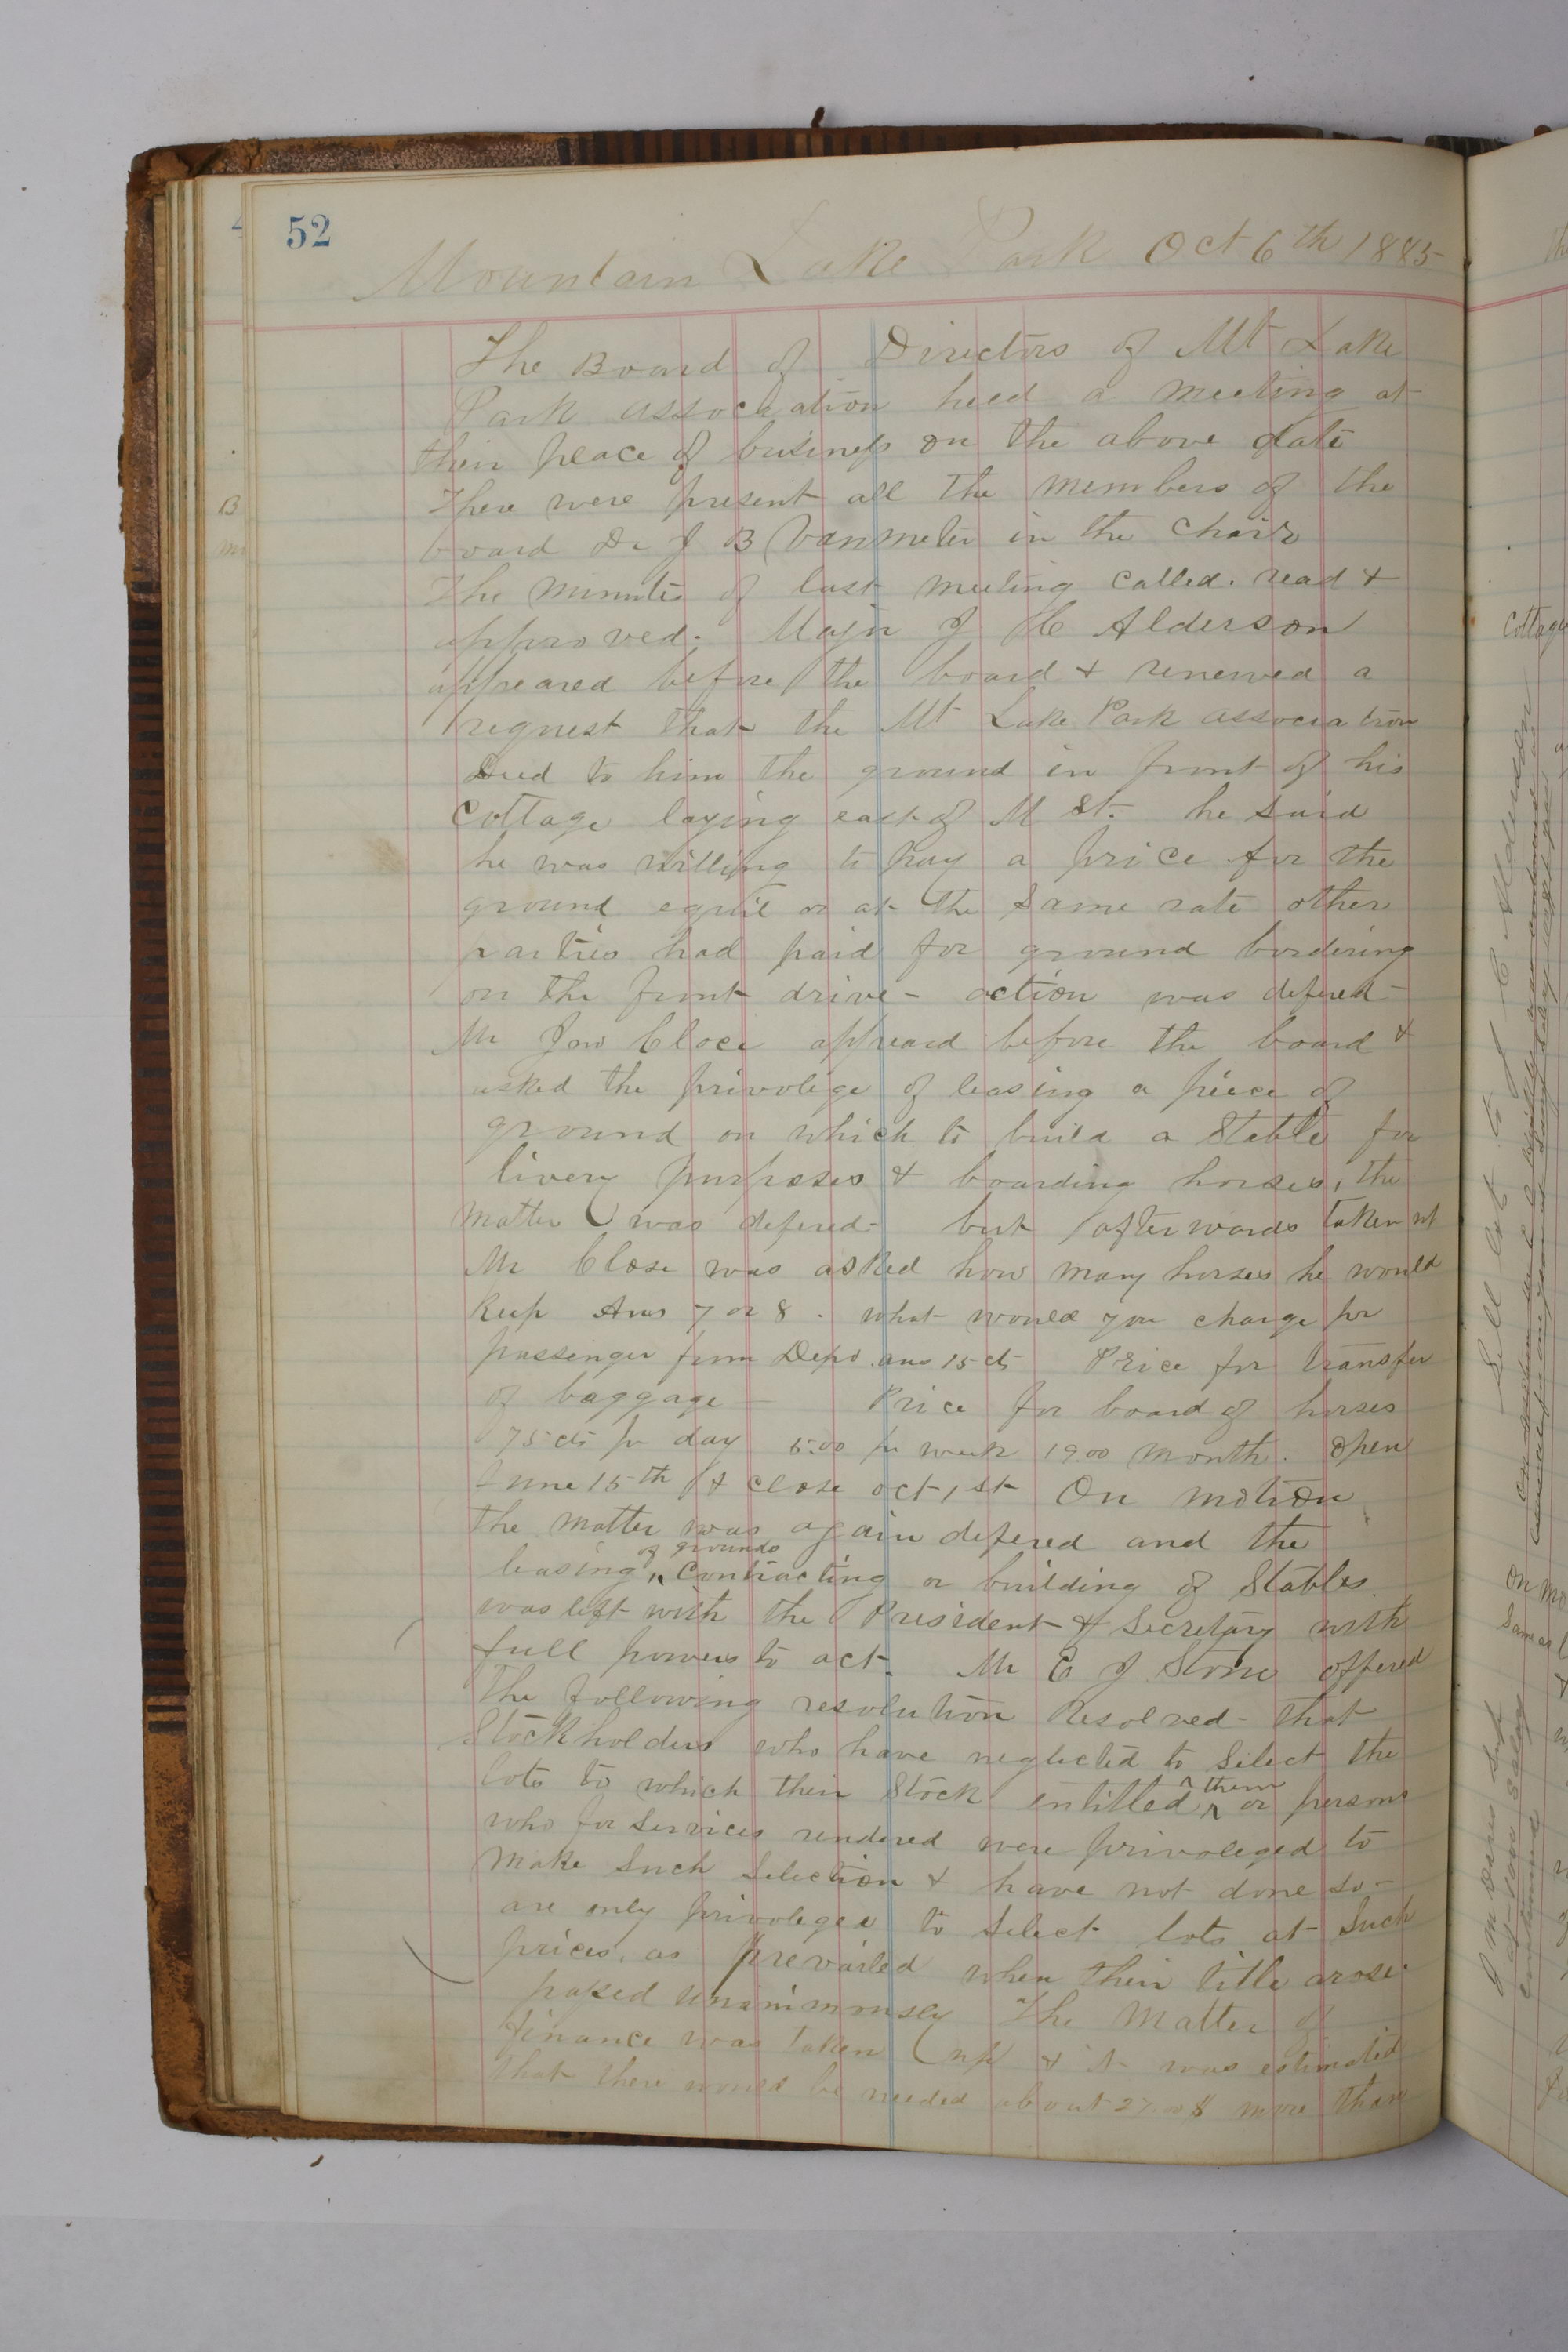 52
Mountain Lake Park Oct 6th 1885
The Board of Directors of Mt Lake
Park association held a meeting at
their place of business on the above date
There were present all the members of the
board Dr J B Vanmeter in the Chair
The minutes of last meeting called. read &
approved. Majr J C Alderson
appeared before the board & renewed a
request that the Mt Lake Park association
Deed to him the ground in front of his
Cottage laying east of M St. he said
he was willing to pay a price for the
ground equil or at the same rate other
parties had paid for ground bordering
on the front drive - action was defered -
Mr Jno Cloce appeard before the board &
asked the privolige of leasing a piece of
ground on which to build a Stable for
livery purposes & boarding horses, the
matter was defered - but afterwards taken up
Mr Close was asked how many horses he would
keep Ans 7 or 8 . what would you charge for
passenger from Depo. ans 15 cts Price for transfer
of baggage — Price for board of horses
75 cts pr day 5.00 pr week 19.00 month. open
June 15th & close oct 1st On motion
the matter was again defered and the
leasing of grounds Contracting or building of Stables
was left with the President & Secretary with
full powers to act. Mr E J Stone offered
the following resolution Resolved - that
Stockholders who have neglected to Select the
lots to which their Stock entitled them or persons
who for Services rendered were privoleged to
make Such Selection & have not done so -
are only privoleged to Select lots at Such
prices, as prevailed when their title arose.
passed unanimously The Matter of
finance was taken up & it was estimated
that there would be needed about 2700 $ more than
Cottage
Sell lot to J C Alderson
on mo